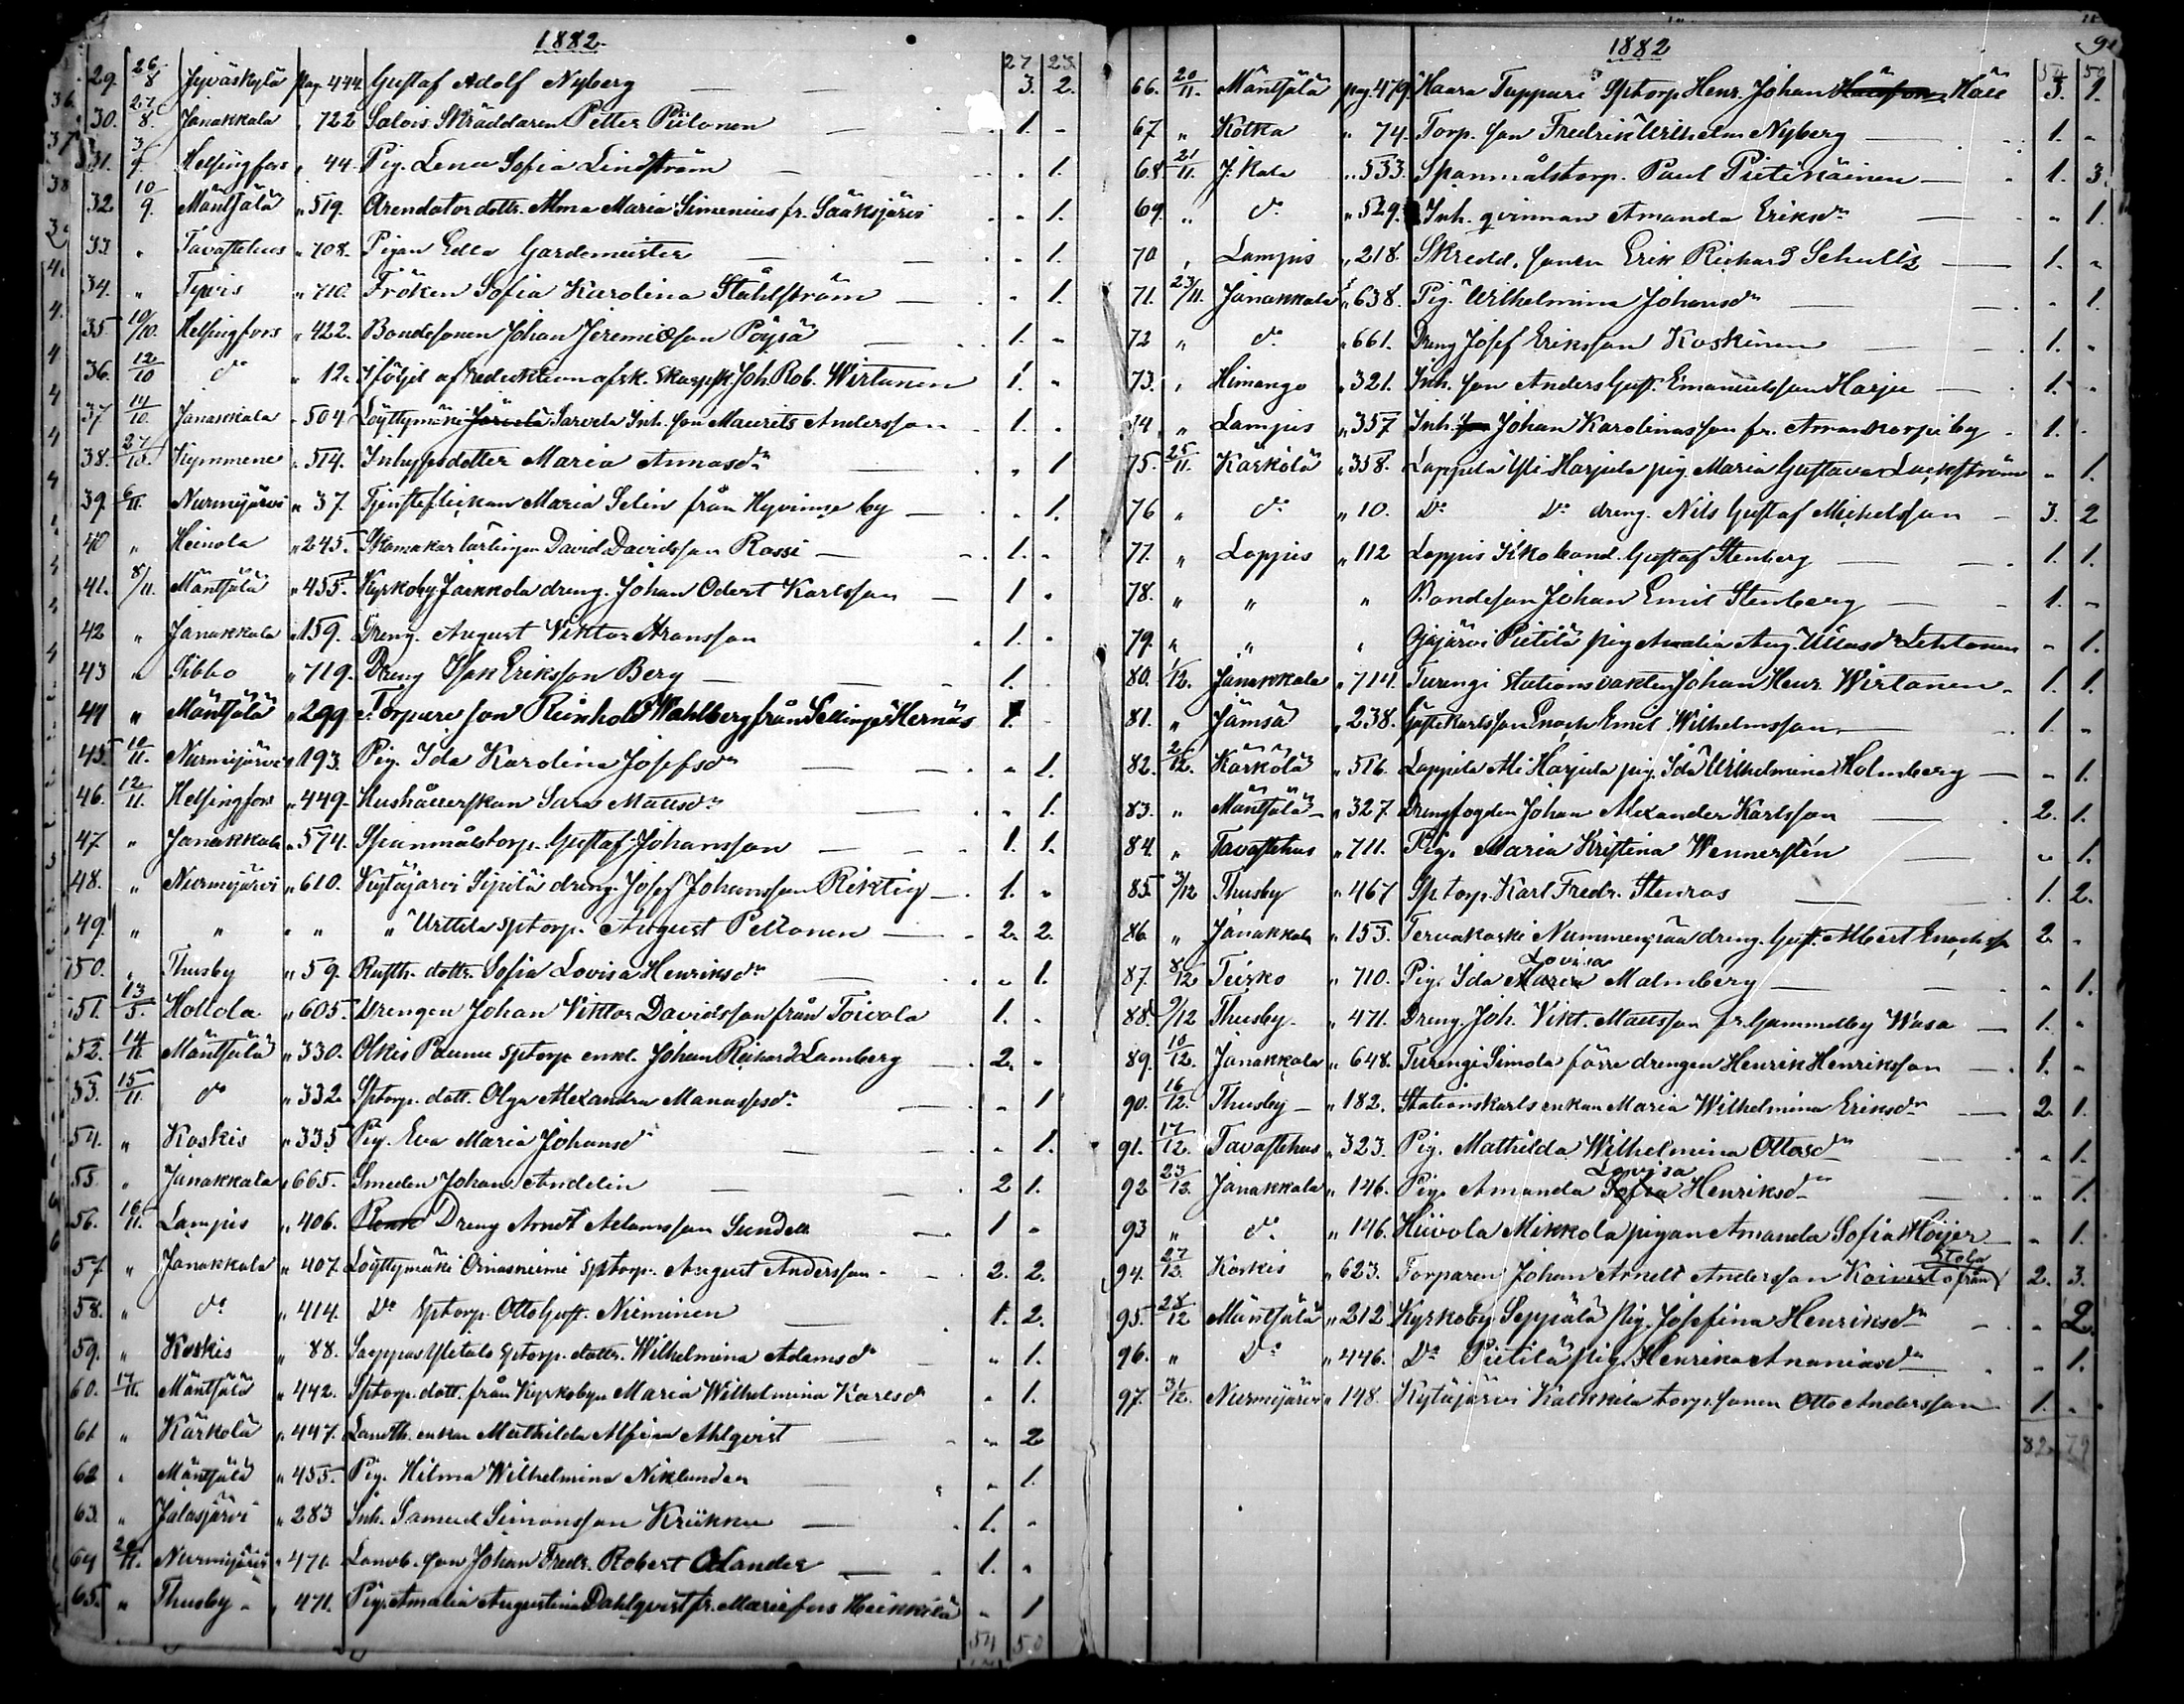 1882
27 23
29. 26/8 Jyväskylä Pag. 444. Gustaf Adolf Nyberg — 3. 2.
30. 27/8. Janakkala " 722 Salois Skräddaren Petter Piilonen — 1. -
31. 3/9. Helsingfors " 44. Pig. Lena Sofia Lindström — - 1.
32 10/9. Mäntsälä " 519. Arendator dottr. Alma Maria Simenius fr. Sääksjärvi - 1.
33. " Tavastehus " 708. Pigan Edla Gardemeister — - 1.
34. " Tyrvis " 710. Fröken Sofia Karolina Ståhlström — - 1.
35 10/10. Helsingfors " 422. Bondesonen Johan Jeremiasson Pöysä — 1. -
36. 12/10 do " 12. Joh. Rob. Wirtanen 1. -
37 14/10. Janakkala " 504 Löyttymäki Sarvela Inh. son Maurits Andersson 1. -
38. 27/10. Kymmene " 514. Inhyses dotter Maria Annasdr - 1
39. 6/11. Nurmijärvi " 37. Tjensteflickan Maria Selin från Hyvinge by — - 1.
40 " Heinola " 245. Skomakar lärlingen David Davidsson Rossi — 1. -
41. 8/11. Mäntsälä " 455. Kyrkoby Jaakkola dreng. Johan Odert Karlsson — 1 -
42 " Janakkala " 159. Dreng. August Viktor Aronsson 1. -
43 " Sibbo " 719. Dreng Isak Eriksson Berg — 1.
44 " Mäntsälä " 299 Torpare son Reinhold Wahlberg från Sellinge Hernäs 1. -
45. 10/11. Nurmijärvi " 193. Pig. Ida Karolina Josefsdr — - 1.
46. 12/11. Helsingfors " 449. Hushållerskan Sara Mattsdr — - 1.
47. " Janakkala " 574. Spanmålstorp. Gustaf Johansson — 1. 1.
48. " Nurmijärvi " 610. Kytäjärvi Sipilä dreng. Josef Johansson Riktig — 1. -
49. " " " " " Urttila sptorp. August Peltonen — 2. 2.
50. " Thusby " 59. Rusth. dottr. Sofia Lovisa Henriksdr — - 1.
51. 13/5. Hollola " 605. Drengen Johan Viktor Davidsson från Toivola 1. -
52. 14/11 Mäntsälä " 330. Olkis Pauna sptorp enkl. Johan Richard Lamberg 2. -
53. 15/11. do " 332. Sptorp. dott. Olga Alexandra Manassedr — - 1
54. " Koskis " 335 Pig. Eva Maria Johansdr — - 1.
55. " Janakkala " 665. Smeden Johan Andelin — 2 1.
56. 16/11. Lampis " 406. Dreng Arnst Adamsson Sundell — 1 -
57. " Janakkala " 407. Löyttymäki Orniasniemi sptorp. August Andersson — 2. 2.
58. " do " 414. Do sptorp. Otto Gust. Nieminen — 1. 2.
59. " Koskis " 88. Sappas Ylitalo sptorp. dottr. Wilhelmina Adamsdr - 1.
60. 17/11. Mäntsälä " 442. Sptorp. dott. från Kyrkobyn Maria Wilhelmina Karlsdr - 1.
61. " Kärkölä " 447. Landth. enkan Mathilda Alfina Ahlqvist — - 2
62 " Mäntsälä " 455. Pig. Hilma Wilhelmina Niklander — - 1.
63. " Jalasjärvi " 283 Inh. Samuel Simonsson Krükka — 1. -
64 20/11. Nurmijärvi " 471. Landb. son Johan Fredr. Robert Olander — 1. -
65. " Thusby - " 471. Pig. Amalia Augustina Dahlqvist fr. Mariefors Heikkilä - 1
54 50
1882
91
54 50
66. 20/11. Mäntsälä pag. 479. Haara Tuppuri Sptorp Henr. Johan Häll 3. 1.
67 " Kotka " 74. Torp. son Fredrik Wilhelm Nyberg — 1. -
68. 21/11. J:kala " 533. Spanmålstorp. Paul Pietikäinen — 1. 3.
69. " do " 529. Inh. qvinnan Amanda Eriksdr - 1.
70 " Lampis " 218. Skredd. sonen Erik Richard Schultz — 1. -
71. 23/11. Janakkala " 638. Pig. Wilhelmina Johansdr — - 1.
72 " do " 661. Dreng Josef Eriksson Koskinen — 1. -
73. " Himango " 321. Inh. son Anders Gust. Emanuelsson Harju — 1. -
74 " Lampis " 357 Inh. son Johan Karolinasson fr. Arrankorpi by - 1. -
75. 25/11. Kärkölä " 358. Lappila Yli Harjula pig. Maria Gustava Lackström - 1.
76 " do " 10. Do Do dreng. Nils Gustaf Michelsson — 3. 2
77. " Loppis " 112 Loppis bond. Gustaf Stenberg — 1. 1.
78. " " " Bondeson Johan Emil Stenberg — 1. -
79. " " " Ojajärvi Pietilä pig Amalia Aug. Ullasdr Lehtonen - 1.
80. 1/12. Janakkala " 714. Turengi Stationsvakten Johan Henr. Wirtanen - 1. 1.
81. " Jämsä " 238. Enoch Emil Wilhelmsson — 1. -
82. 2/12. Kärkölä " 516. Lappila Ali Harjula pig. Ida Wilhelmina Holmberg — - 1.
83. " Mäntsälä - " 327. Drengfogden Johan Alexander Karlsson — 2. 1.
84. " Tavastehus " 711. Pig. Maria Kristina Wennerstén — - 1.
85. 3/12 Thusby " 467 Sptorp. Karl Fredr. Stenros — 1. 2.
86 " Janakkala " 153. Tervakoski Nummenpää dreng. Gust. Albert Enochss. 2. -
87. 8/12 Teisko " 710. Pig. Ida Maria Lovisa Malmberg — - 1.
88. 9/12 Thusby. " 471. Dreng Joh. Vikt. Mattsson fr. Gammelby Wasa — 1. -
89. 10/12. Janakkala " 648. Turengi Simola förre drengen Henrik Henriksson — 1. -
90. 16/12. Thusby — " 182. Stationskarls enkan Maria Wilhelmina Eriksdr — 2. 1.
91. 17/12. Tavastehus " 323. Pig. Mathilda Wilhelmina Ottosdr — - 1.
92 23/12. Janakkala " 146. Pig. Amanda Sofia Lovisa Henriksdr — - 1.
93 " do " 146. Hiivola Mikkola pigan Amanda Sofia Höijer — - 1.
94. 27/12. Koskis " 623. Torparen Johan Arnell Andersson Koivisto från Etola 2. 3.
95. 28/12 Mäntsälä " 212 Kyrkoby Seppälä pig. Josefina Henriksdr - 2.
96. " Do " 446. Do Pietilä pig. Henrika Ananiasdr - 1.
97. 31/12. Nurmijärvi " 148. Kytäjärvi Kalkkila torp. sonen Otto Andersson 1. -
82 79